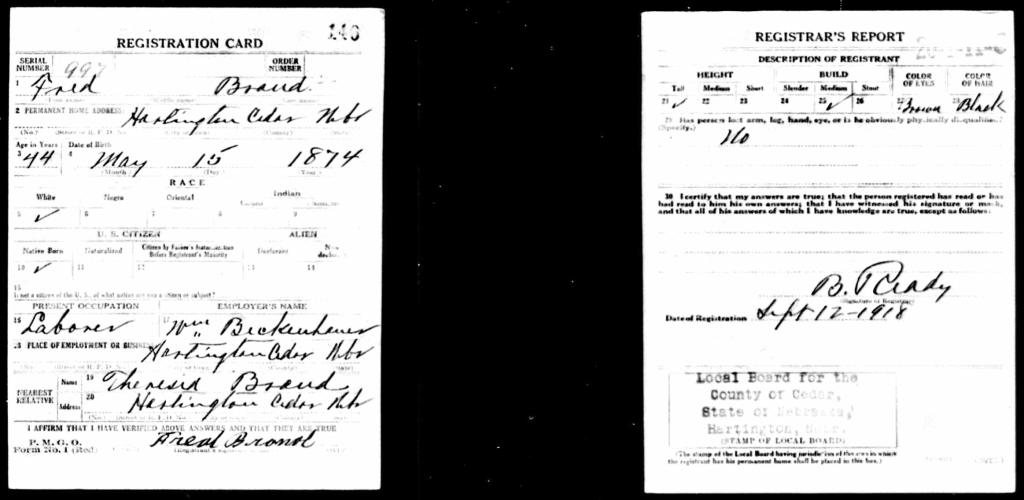 146
REGISTRATION CARD
SERIAL NUMBER 997 ORDER NUMBER
1 Fred Brand.
2 PERMANENT HOME ADDRESS: Hartington Cedar Nebr
Age in Years Date of Birth
3 44 4 May 15 1874
(Month) (Day) (Year)
RACE
White Negro Oriental Indian
5 ✓ 6 7 8 9
U. S. CITIZEN ALIEN
Native Born Naturalized Citizen by Father's Naturalization Before Registrant's Majority Declarant
10 ✓ 11 12 13 14
15
If not a citizen of the U. S., of what nation are you a citizen or subject?
PRESENT OCCUPATION EMPLOYER'S NAME
16 Laborer 17 Wm Beckenhauer
18 PLACE OF EMPLOYMENT OR BUSINESS
Hartington Cedar Nebr
NEAREST RELATIVE Name 19 Theresia Brand
Address 20 Hartington Cedar Nebr
I AFFIRM THAT I HAVE VERIFIED ABOVE ANSWERS AND THAT THEY ARE TRUE
P. M. G. O.
Form No. 1 (Red) Fred Brand
REGISTRAR'S REPORT
DESCRIPTION OF REGISTRANT
HEIGHT BUILD COLOR OF EYES COLOR OF HAIR
Tall Medium Short Slender Medium Stout
21 ✓ 22 23 24 25 ✓ 26 27 Brown Black
29 Has person lost arm, leg, hand, eye, or is he obviously physically disqualified?
(Specify.) No
30 I certify that my answers are true; that the person registered has read or has
had read to him his own answers; that I have witnessed his signature or mark,
and that all of his answers of which I have knowledge are true, except as follows:
(Signature of Registrar)
Date of Registration Sept 12-1918
Local Board for the
County of Cedar,
State of Nebraska,
Hartington, Nebr.
(STAMP OF LOCAL BOARD)
(The stamp of the Local Board having jurisdiction of the area in which
the registrant has his permanent home shall be placed in this box.)